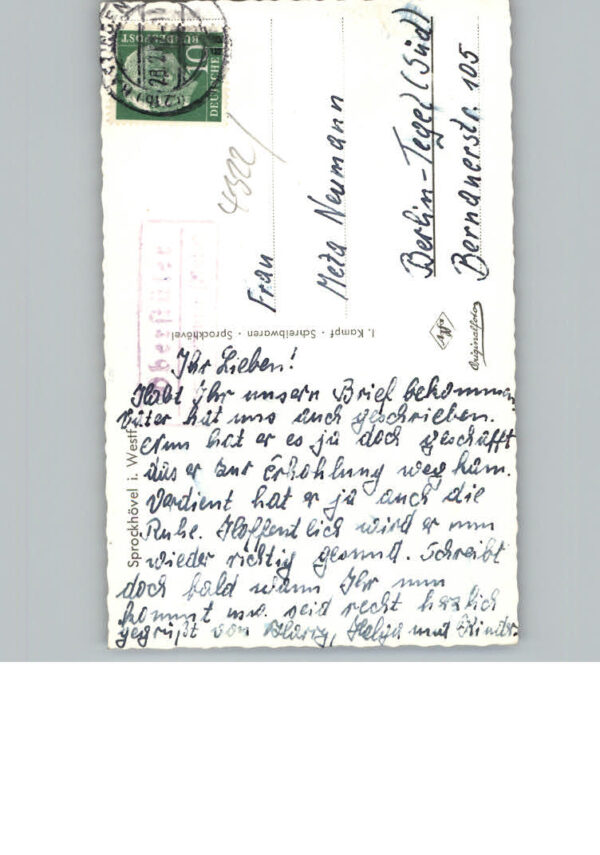 HATTINGEN
DEUTSCHE
BUNDESPOST
10
4322/
Oberstüter
Frau
Meta Neumann
Berlin-Tegel (Süd)
Bernauerstr. 105
I. Kampf · Schreibwaren · Sprockhövel
Agfa
Originalfoto
Sprockhövel i. Westf
Ihr Lieben!
Habt Ihr unsern Brief bekommen.
Vater hat uns auch geschrieben.
Nun hat er es ja doch geschafft
das er zur Erhohlung weg kam.
Verdient hat er ja auch die
Ruhe. Hoffentlich wird er nun
wieder richtig gesund. Schreibt
doch bald wann Ihr nun
kommt u. seid recht herzlich
gegrüßt von Harry, Helga und Kinder.